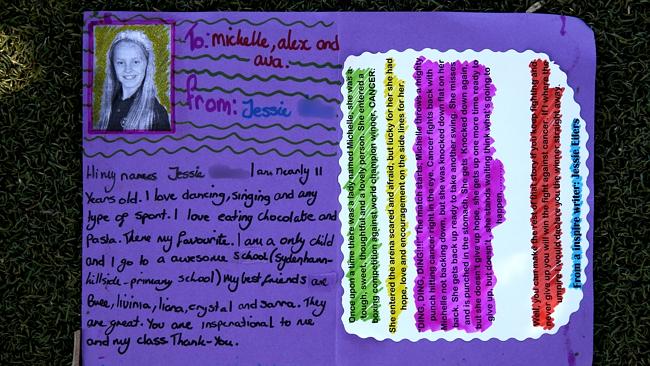 To: michelle, alex and
ava.
From: Jessie
Hi my names Jessie I am nearly 11
years old. I love dancing, singing and any
type of sport. I love eating chocolate and
Pasta. There my favourite. I am a only child
and I go to a awesome school (Sydenham-
hillside-primary school) my best friends are
Bree, livinia, liana, crystal and sanra. They
are great. You are inspirational to me
and my class Thank-You.
Once upon a time there was a lady named Michelle, she was a
tough, sweet, thoughtful and a lovely person. She entered a
boxing competition against world champion winner, CANCER.
She entered the arena scared and afraid, but lucky for her she had
hope, love and encouragement on the side lines for her.
DING, DING, DING!!! The match starts, Michelle throws a mighty
punch hitting cancer right in the eye. Cancer fights back with
Michelle not backing down, but she was knocked down flat on her
back. She gets back up ready to take another swing. She misses
and is punched in the stomach. She gets Knocked down again,
but she doesn't give up hope, she gets up one more time ready to
give up, but doesn't, she stands waiting thinking what's going to
happen
Well, you can make the rest of that story. If you keep fighting and
never give up you will win the fight against cancer, if I where the
umpire I would declare you the winner straight away.
From a inspire writer: Jessie Ellers